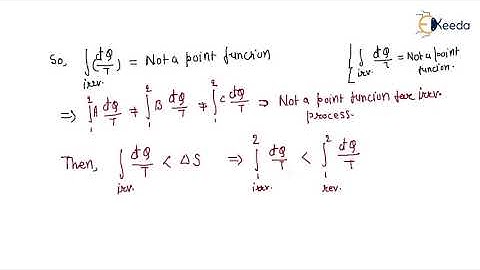 Ekeeda
So, ∫irrv. (đQ/T) = Not a point funcion
[ ∫irrv. đQ/T = Not a point funcion.
⇒ ₁∫² A đQ/T ≠ ₁∫² B đQ/T ≠ ₁∫² C đQ/T ⇒ Not a point funcion for irrv.
process.
Then, ∫irv. đQ/T < ΔS ⇒ ₁∫² irrv. đQ/T < ₁∫² rev. đQ/T